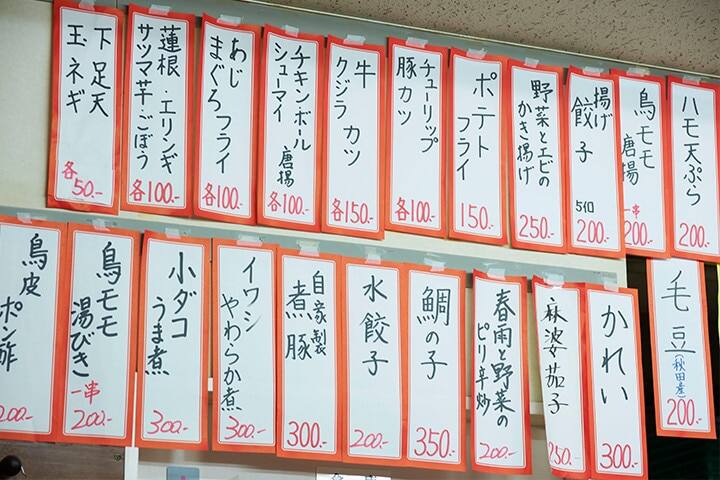 ハモ天ぷら
200.-
鳥モモ
唐揚
一串
200.-
揚げ
餃子
5個
200.-
野菜とエビの
かき揚げ
250.-
ポテト
フライ
150.-
チューリップ
豚カツ
各100.-
牛
クジラカツ
各150.-
チキン・ボール
シューマイ 唐揚
各100.-
あじ
まぐろフライ
各100.-
蓮根・エリンギ
サツマ芋・ごぼう
各100.-
下足天
玉ネギ
各50.-
毛豆
(秋田産)
200.-
かれい
300.-
麻婆茄子
250.-
春雨と野菜の
ピリ辛炒
200.-
鯛の子
350.-
水餃子
200.-
自家製
煮豚
300.-
イワシ
やわらか煮
300.-
小ダコ
うま煮
300.-
鳥モモ
湯びき
一串
200.-
鳥皮
ポン酢
200.-